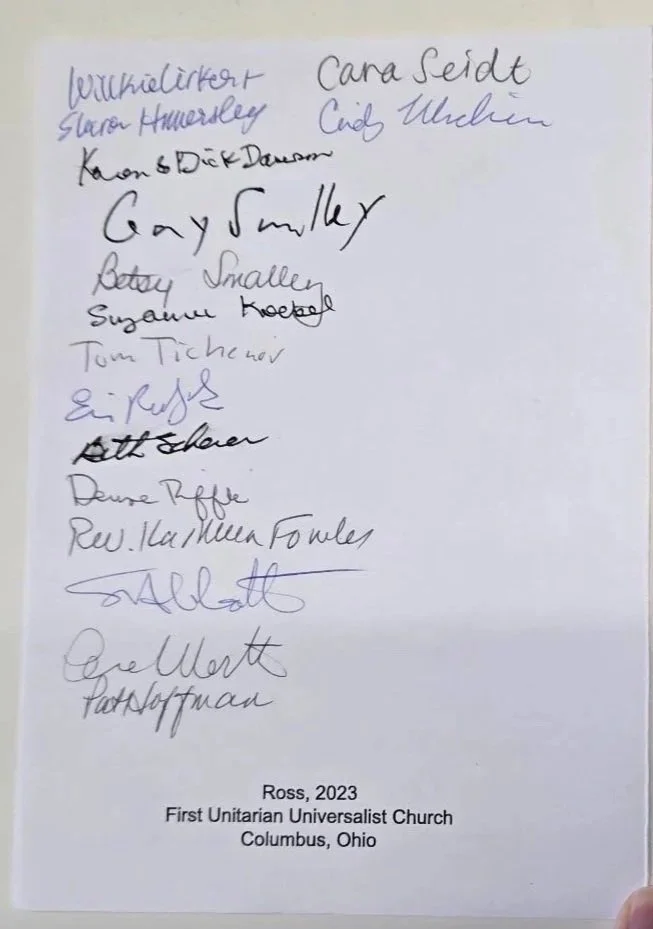 Cara Seidt
Sharon Hamersley
Cindy
Karen & Dick Dawson
Gay Smalley
Betsy Smalley
Suzanne Koebel
Tom Tichenor
Beth Scherer
Denise Riffle
Rev. Kathleen Fowles
Abbott
Pat Hoffman
Ross, 2023
First Unitarian Universalist Church
Columbus, Ohio